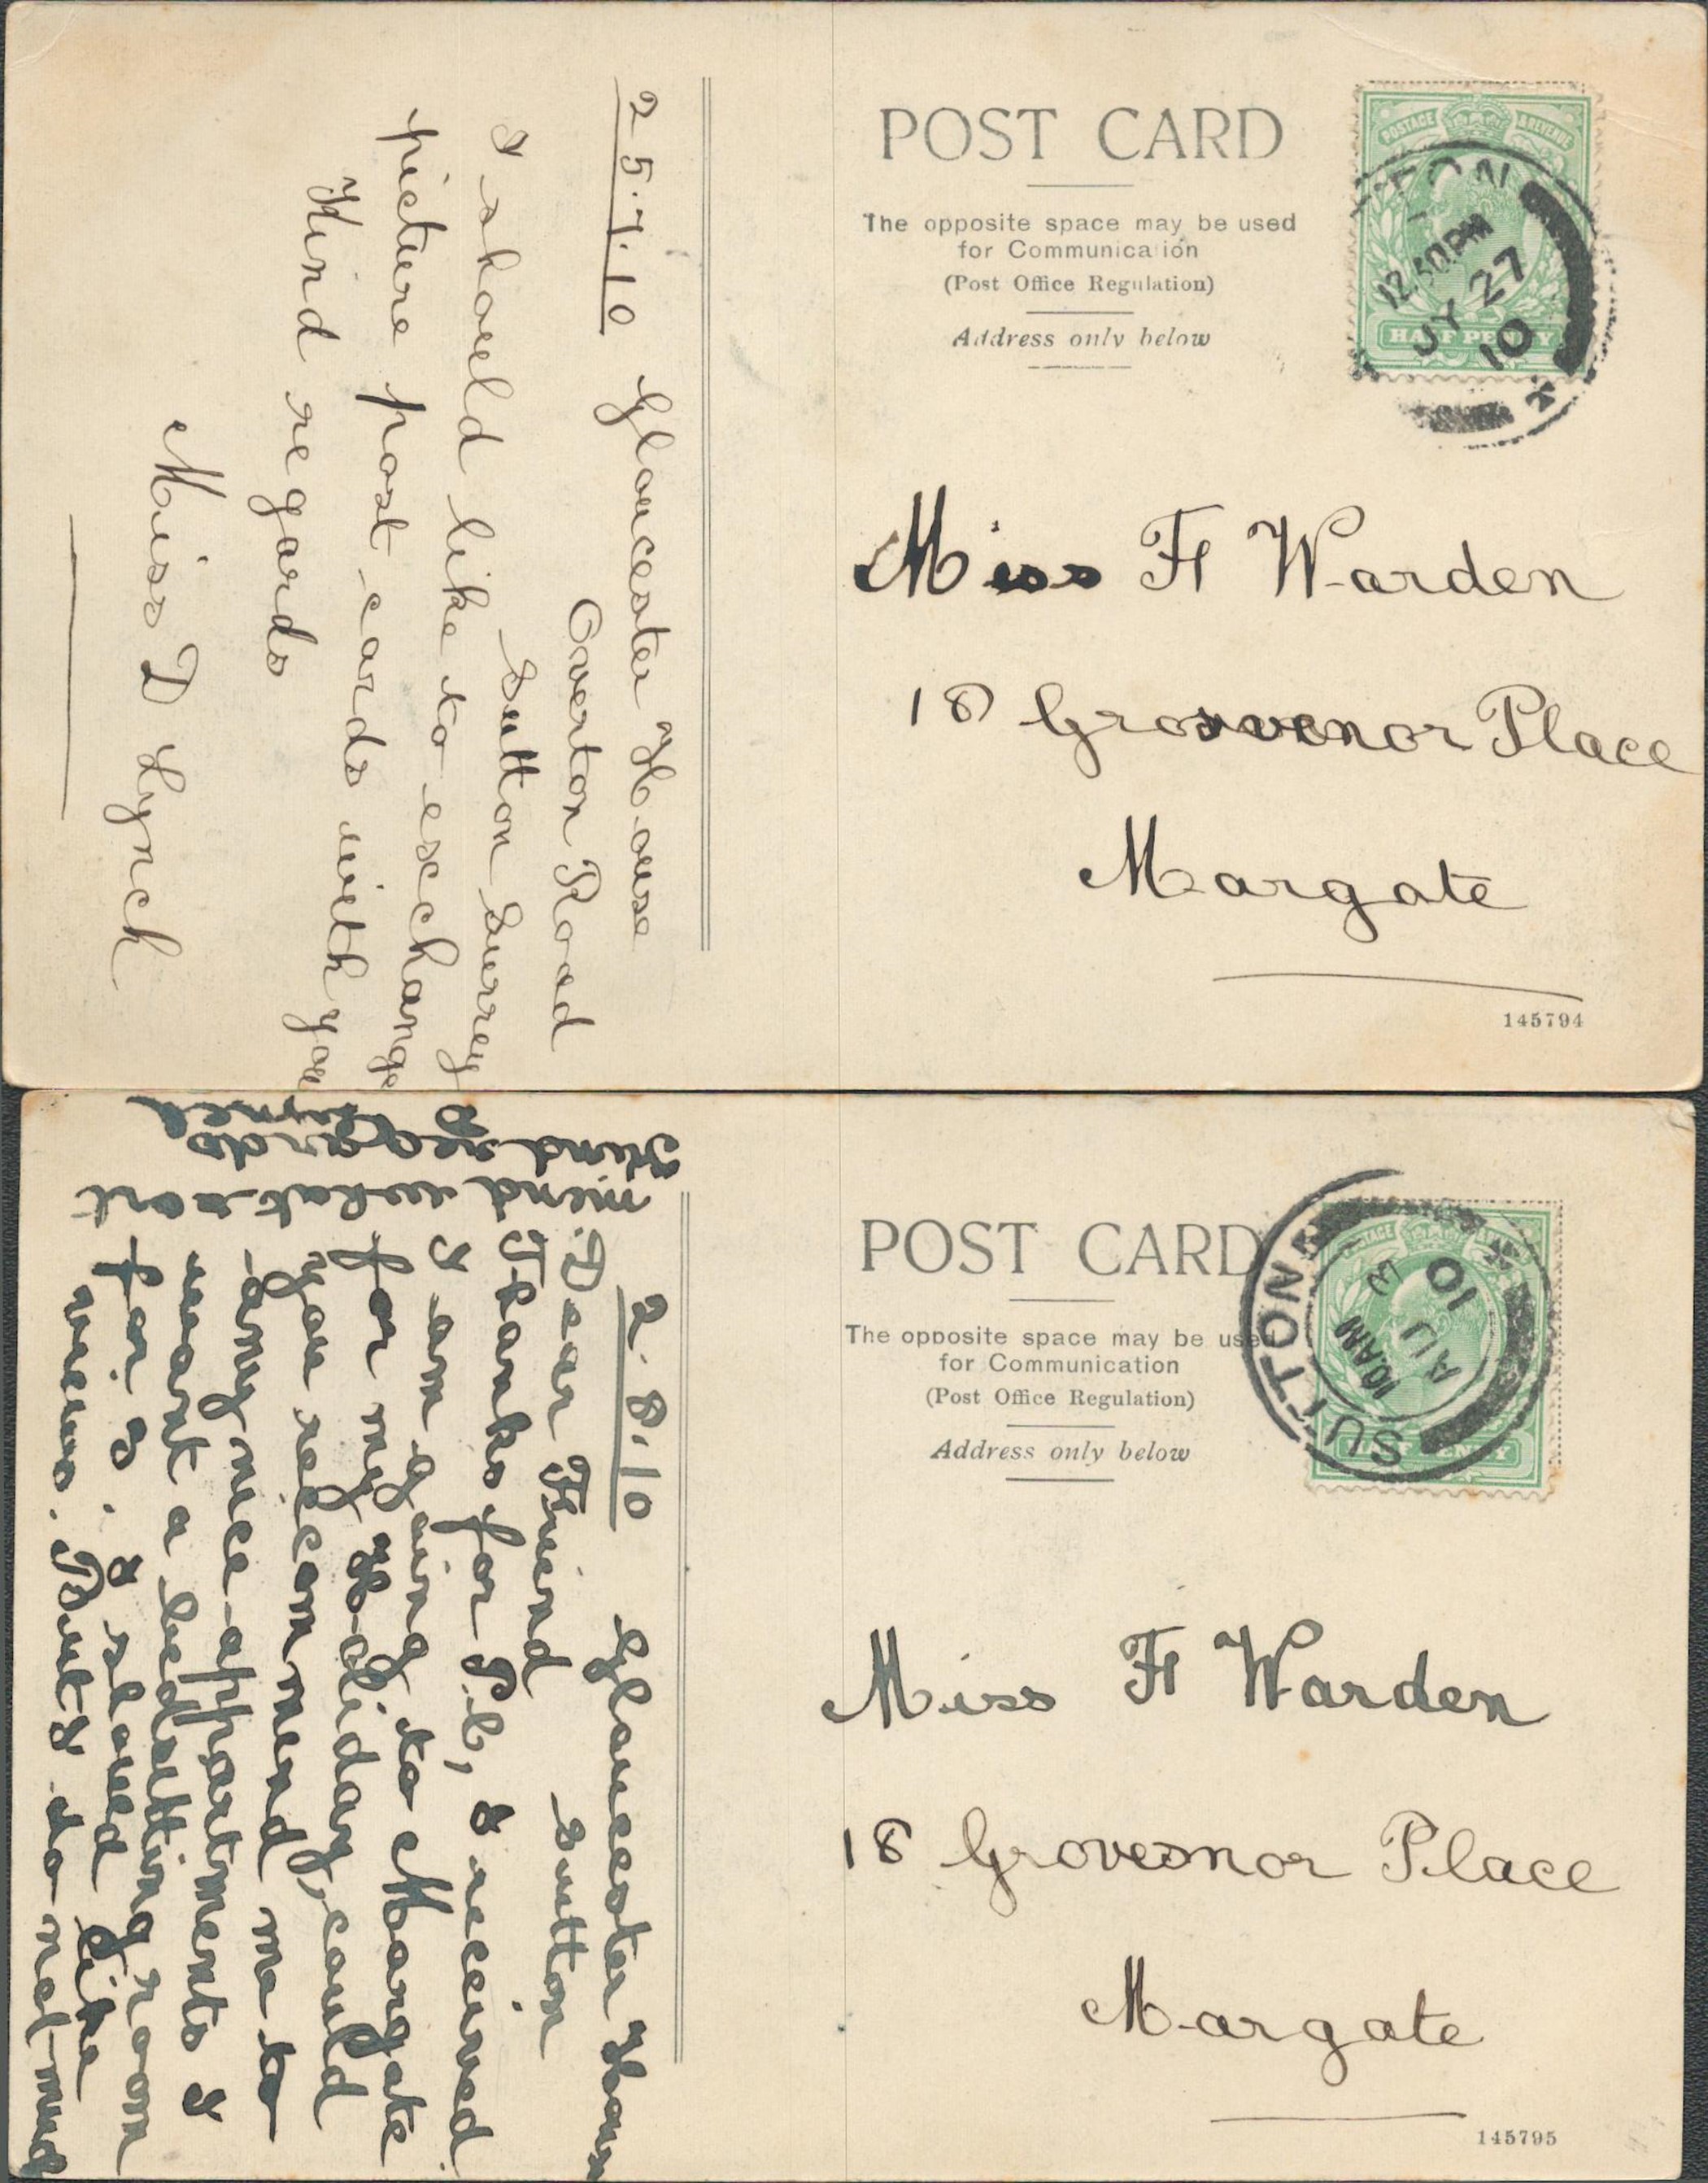 25.7.10 Gloucester House
Overton Road
Sutton Surrey
I should like to exchange
picture post cards with you
Kind regards
Miss D Lynch
POST CARD
The opposite space may be used
for Communication
(Post Office Regulation)
Address only below
POSTAGE & REVENUE
HALF PENNY
12.50PM
JY 27
10
Miss F Warden
18 Grosvenor Place
Margate
145794
2.8.10 Gloucester House
Sutton
Dear Friend
Thanks for P.C, I received.
I am going to Margate
for my Holiday, could
you recommend me to
any nice appartments I
want a bedsitting room
for 3. I should like
views. But I do not mind
mind what sort
Kind regards
D Lynch
POST CARD
The opposite space may be used
for Communication
(Post Office Regulation)
Address only below
SUTTON
10AM
AU 3
10
HALF PENNY
Miss F Warden
18 Grovesnor Place
Margate
145795